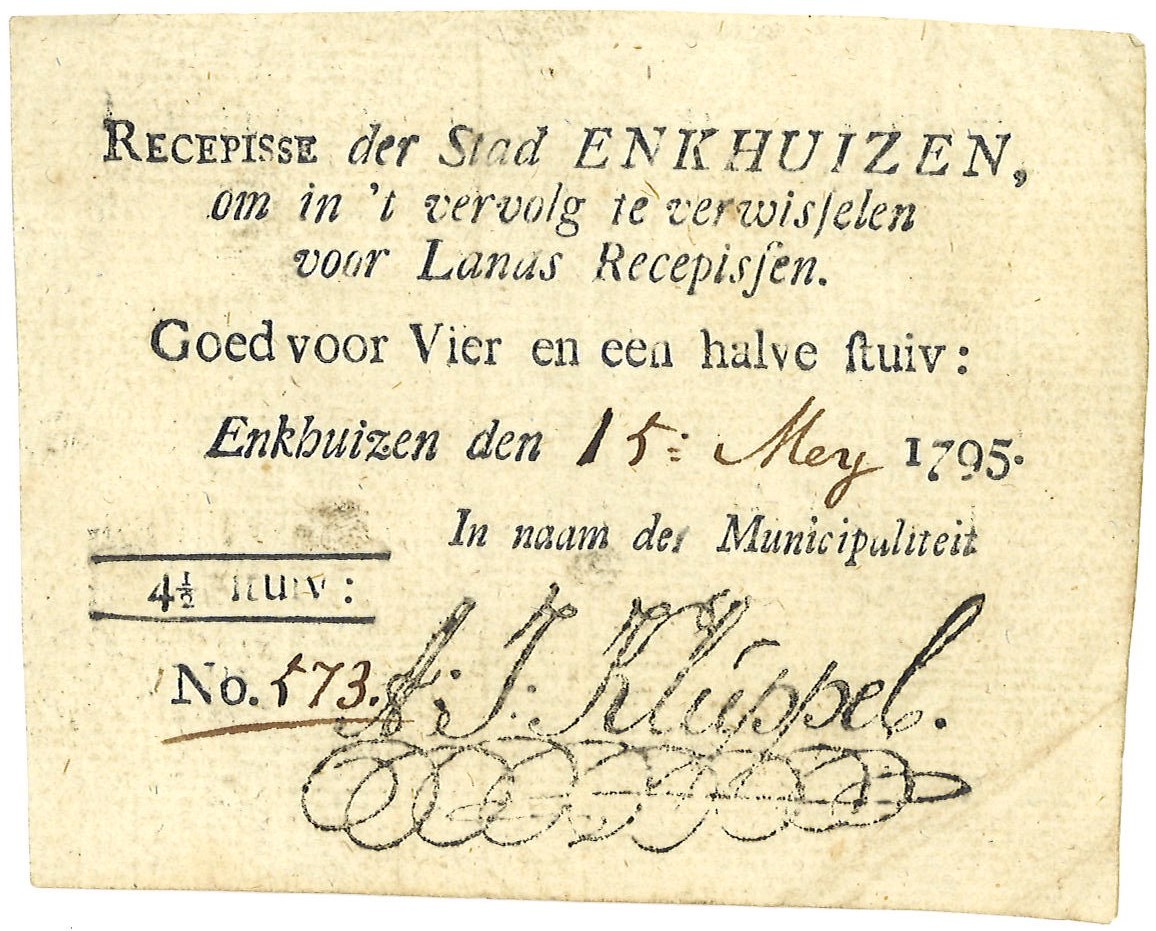 RECEPISSE der Stad ENKHUIZEN,
om in 't vervolg te verwisſelen
voor Lands Recepisſen.
Goed voor Vier en een halve ſtuiv:
Enkhuizen den 15: Mey 1795.
In naam der Municipaliteit
4½ ſtuiv:
No. 573.
A: J: Kluppel.